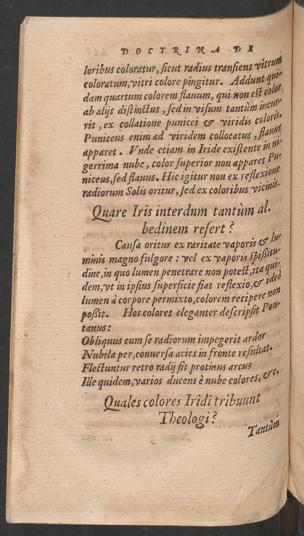 DOCTRINA DE
loribus coloratur, sicut radius transiens vitrum
coloratum, vitri colore pingitur. Addunt qui-
dam quartum colorem flauum, qui non est color
ab alijs distinctus, sed in visum tantùm incur-
rit, ex collatione punicei & viridis coloris.
Puniceus enim ad viridem collocatus, flauus
apparet. Vnde etiam in Iride existente in ni-
gerrima nube, color superior non apparet Pu-
niceus, sed flauus. Hic igitur non ex reflexione
radiorum Solis oritur, sed ex coloribus vicinis.
Quare Iris interdum tantùm al-
bedinem refert?
Causa oritur ex raritate vaporis & lu-
minis magno fulgore: vel ex vaporis spissitu-
dine, in quo lumen penetrare non potest, ita qui-
dem, vt in ipsius superficie fiat reflexio, & ideò
lumen à corpore permixto, colorem recipere non
possit. Hos colores eleganter descripsit Pon-
tanus:
Obliquus cum se radiorum impegerit ardor
Nubila per, conuersa acies in fronte resultat.
Flectuntur retro radij fit protinus arcus
Ille quidem, varios ducens è nube colores, &c.
Quales colores Iridi tribuunt
Theologi?
Tantùm